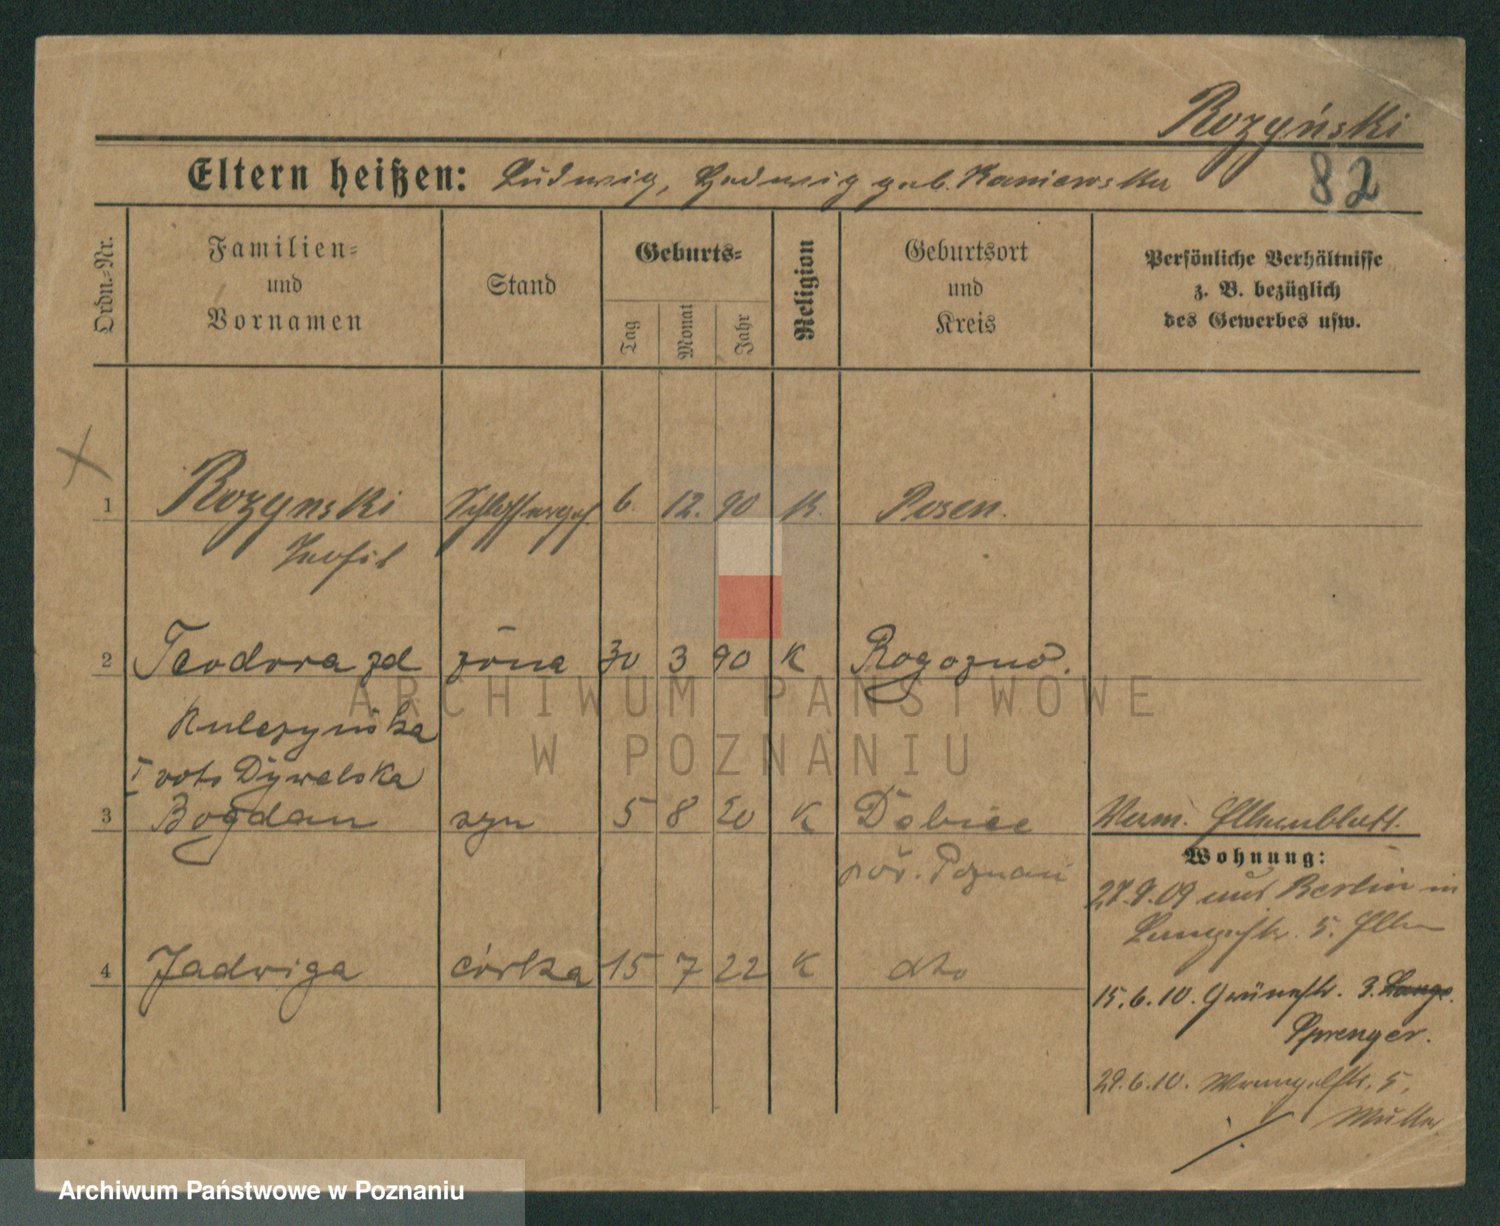 Rozyński
82
Eltern heißen: Ludwig, Hedwig geb. Kaniewska
Ordn.-Nr.
Familien-
und
Vornamen
Stand
Geburts-
Tag
Monat
Jahr
Religion
Geburtsort
und
Kreis
Persönliche Verhältnisse
z. B. bezüglich
des Gewerbes usw.
1 Rozynski Schlosserges 6. 12. 90 K. Posen.
Teofil
2 Teodora zd żona 30 3 90 K Rogozno.
Kulczyńska
I voto Dywelska
3 Bogdan syn 5 8 20 K Dębiec
pow. Poznań
Verm. Elternblatt.
Wohnung:
27.9.09 aus Berlin in
Langestr. 5. Eltern
4 Jadwiga córka 15 7 22 K dto
15.6.10. Grünestr. 3.
Sprenger.
29.6.10. Wrangelstr. 5.
Müller
ARCHIWUM PAŃSTWOWE
W POZNANIU
Archiwum Państwowe w Poznaniu